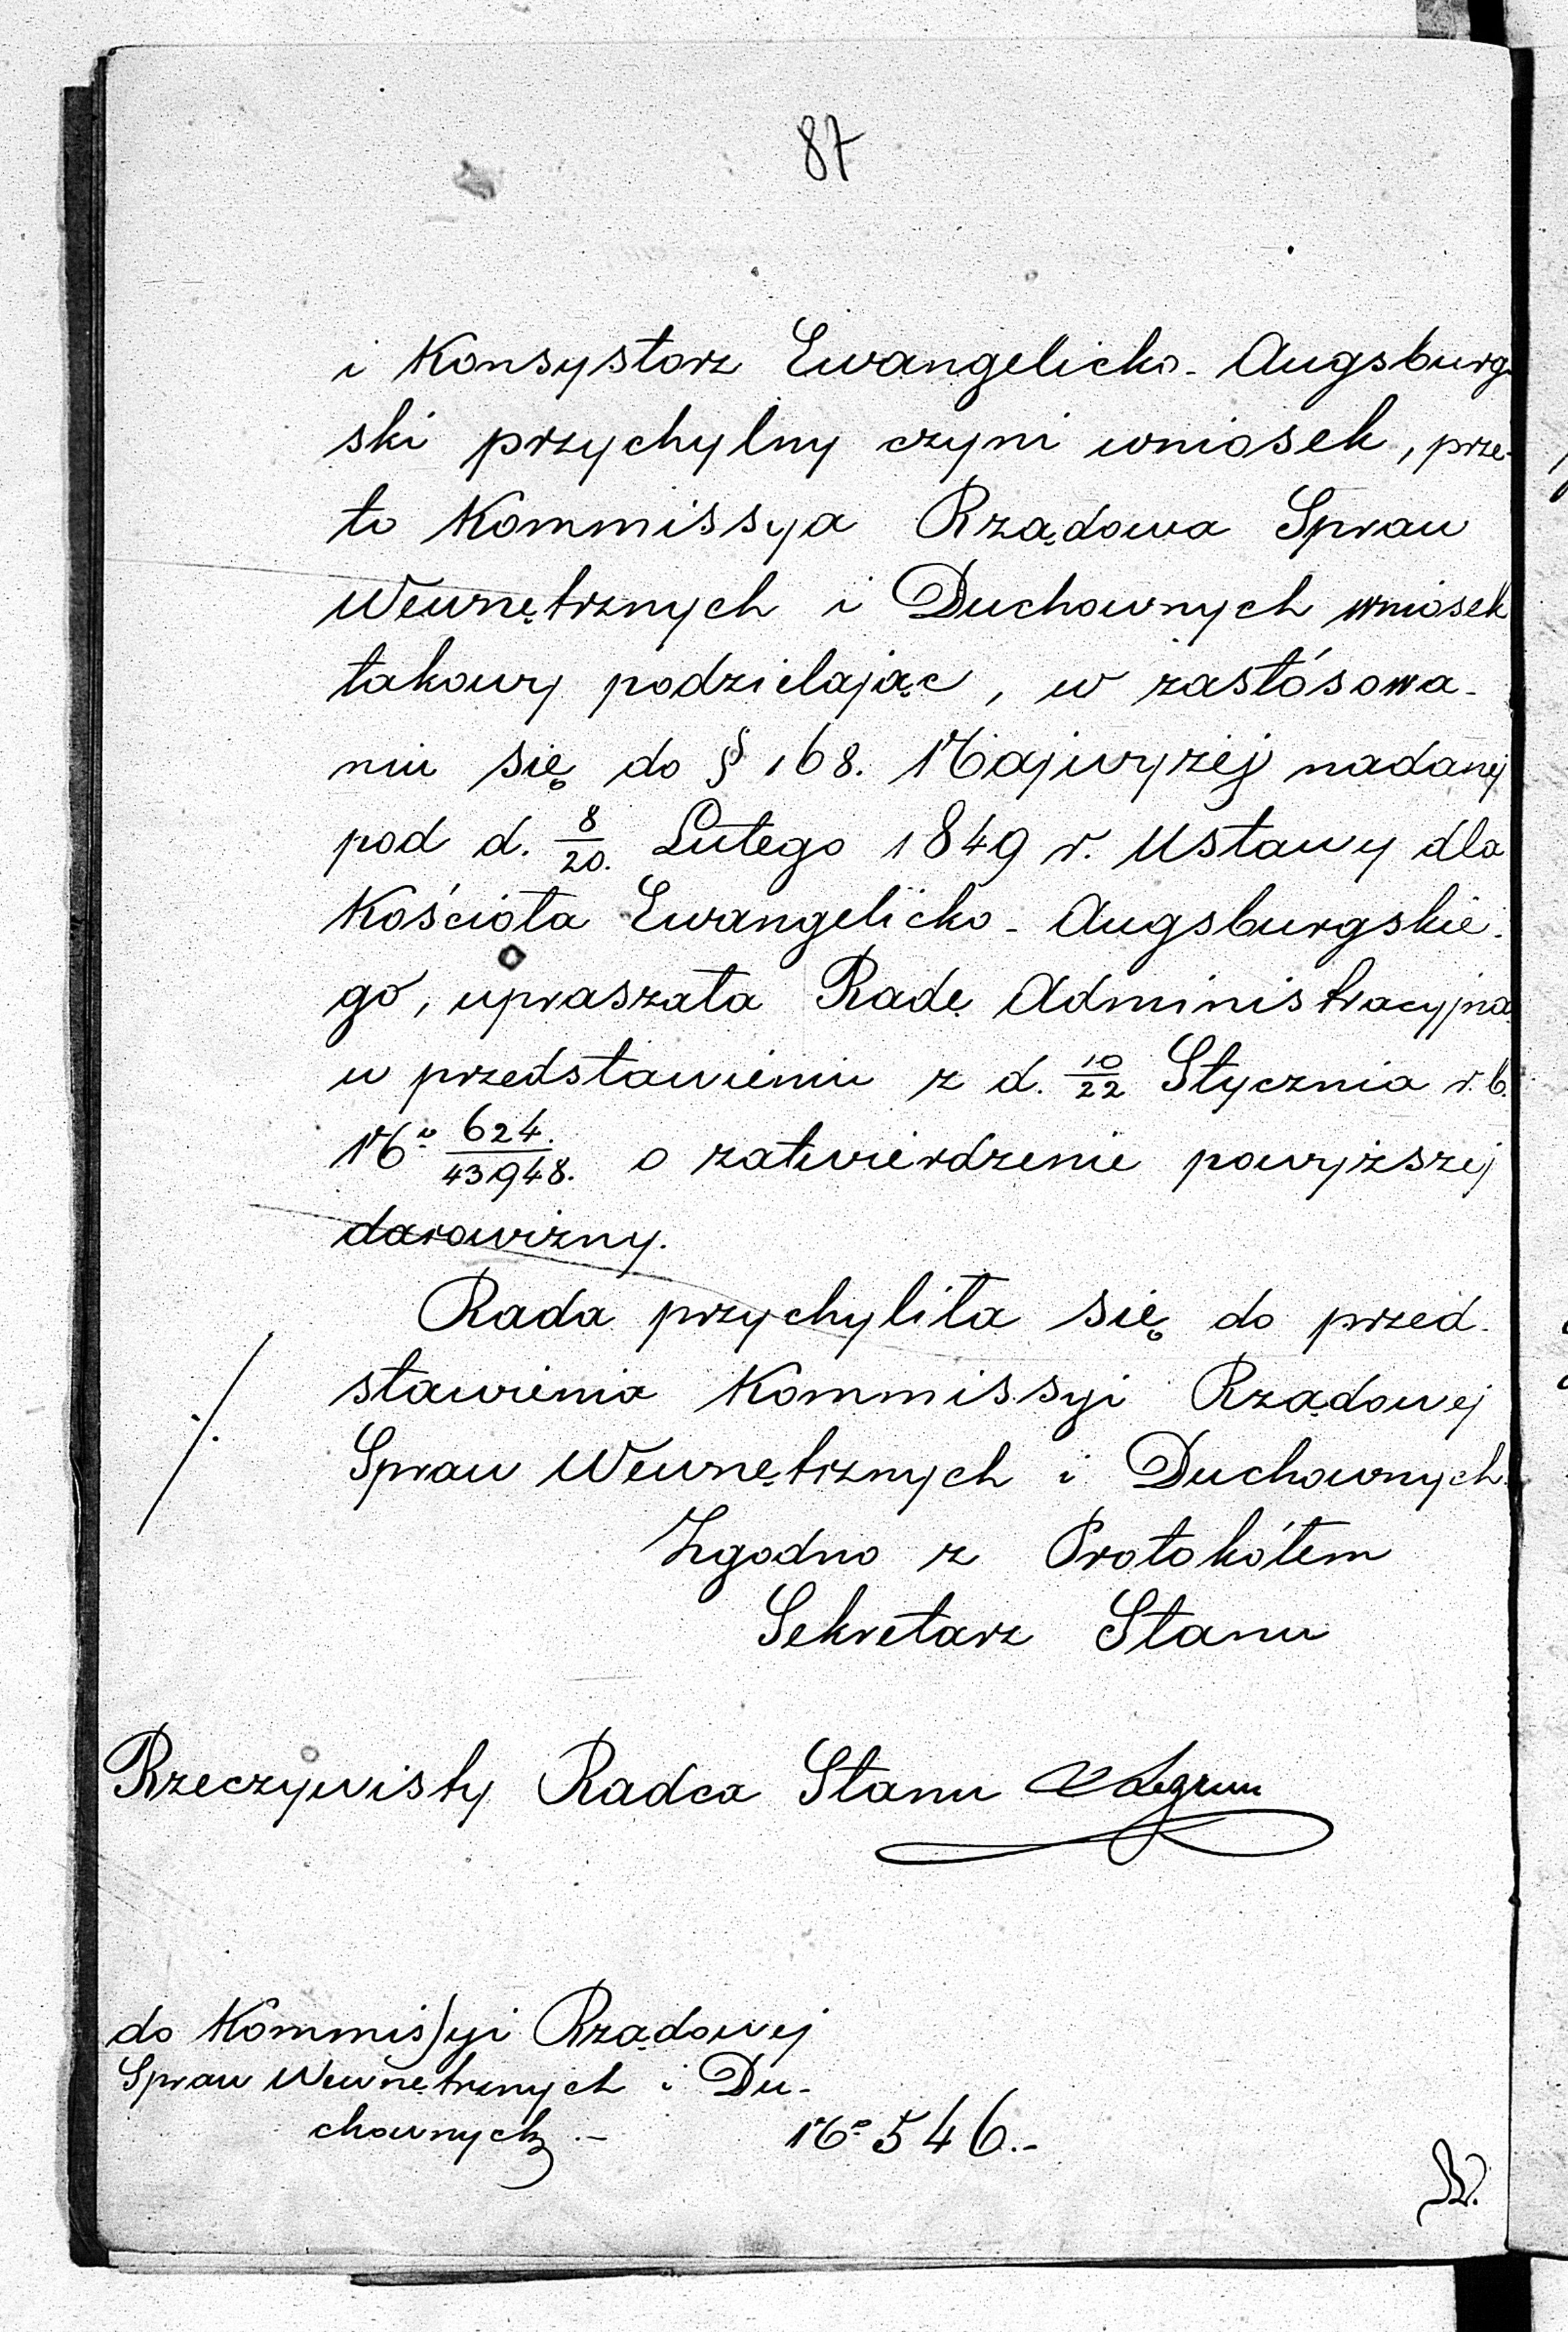 87
i Konsystorz Ewangelicko-Augsburg-
ski przychylny czyni wniosek, prze-
to Kommissya Rządowa Spraw
Wewnętrznych i Duchownych wniosek
takowy podzielając, w zastósowa-
niu się do § 168. Najwyżéj nadanéj
pod d. 8/20. Lutego 1849 r. Ustawy dla
Kościoła Ewangelicko-Augsburgskie-
go, upraszała Radę Administracyjną
w przedstawieniu z d. 10/22 Stycznia r. b.
No 624./43948. o zatwierdzenie powyższej
darowizny.
Rada przychyliła się do przed-
stawienia Kommissyi Rządowej
Spraw Wewnętrznych i Duchownych.
Zgodno z Protokółem
Sekretarz Stanu
Rzeczywisty Radca Stanu
do Kommissyi Rządowej
Spraw Wewnętrznych i Du-
chownych.-
No 546.-